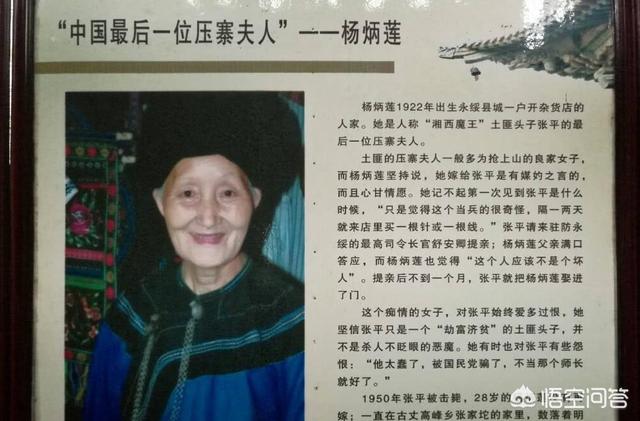 “中国最后一位压寨夫人”——杨炳莲
杨炳莲1922年出生永绥县城一户开杂货店的
人家。她是人称“湘西魔王”土匪头子张平的最
后一位压寨夫人。
土匪的压寨夫人一般多为抢上山的良家女子，
而杨炳莲坚持说，她嫁给张平是有媒妁之言的，
而且心甘情愿。她记不起第一次见到张平是什么
时候，“只是觉得这个当兵的很奇怪，隔一两天
就来店里买一根针或一根线。”张平请来驻防永
绥的最高司令长官舒安卿提亲；杨炳莲父亲满口
答应，而杨炳莲也觉得“这个人应该不是个坏
人”。提亲后不到一个月，张平就把杨炳莲娶进
了门。
这个痴情的女子，对张平始终爱多过恨，她
坚信张平只是一个“劫富济贫”的土匪头子，并
不是杀人不眨眼的恶魔。她有时也对张平有些怨
恨：“他太蠢了，被国民党骗了，不当那个师长
就好了。”
1950年张平被击毙，28岁的
嫁；一直在古丈高峰乡张家坨的家里，数落着明
悟空问答